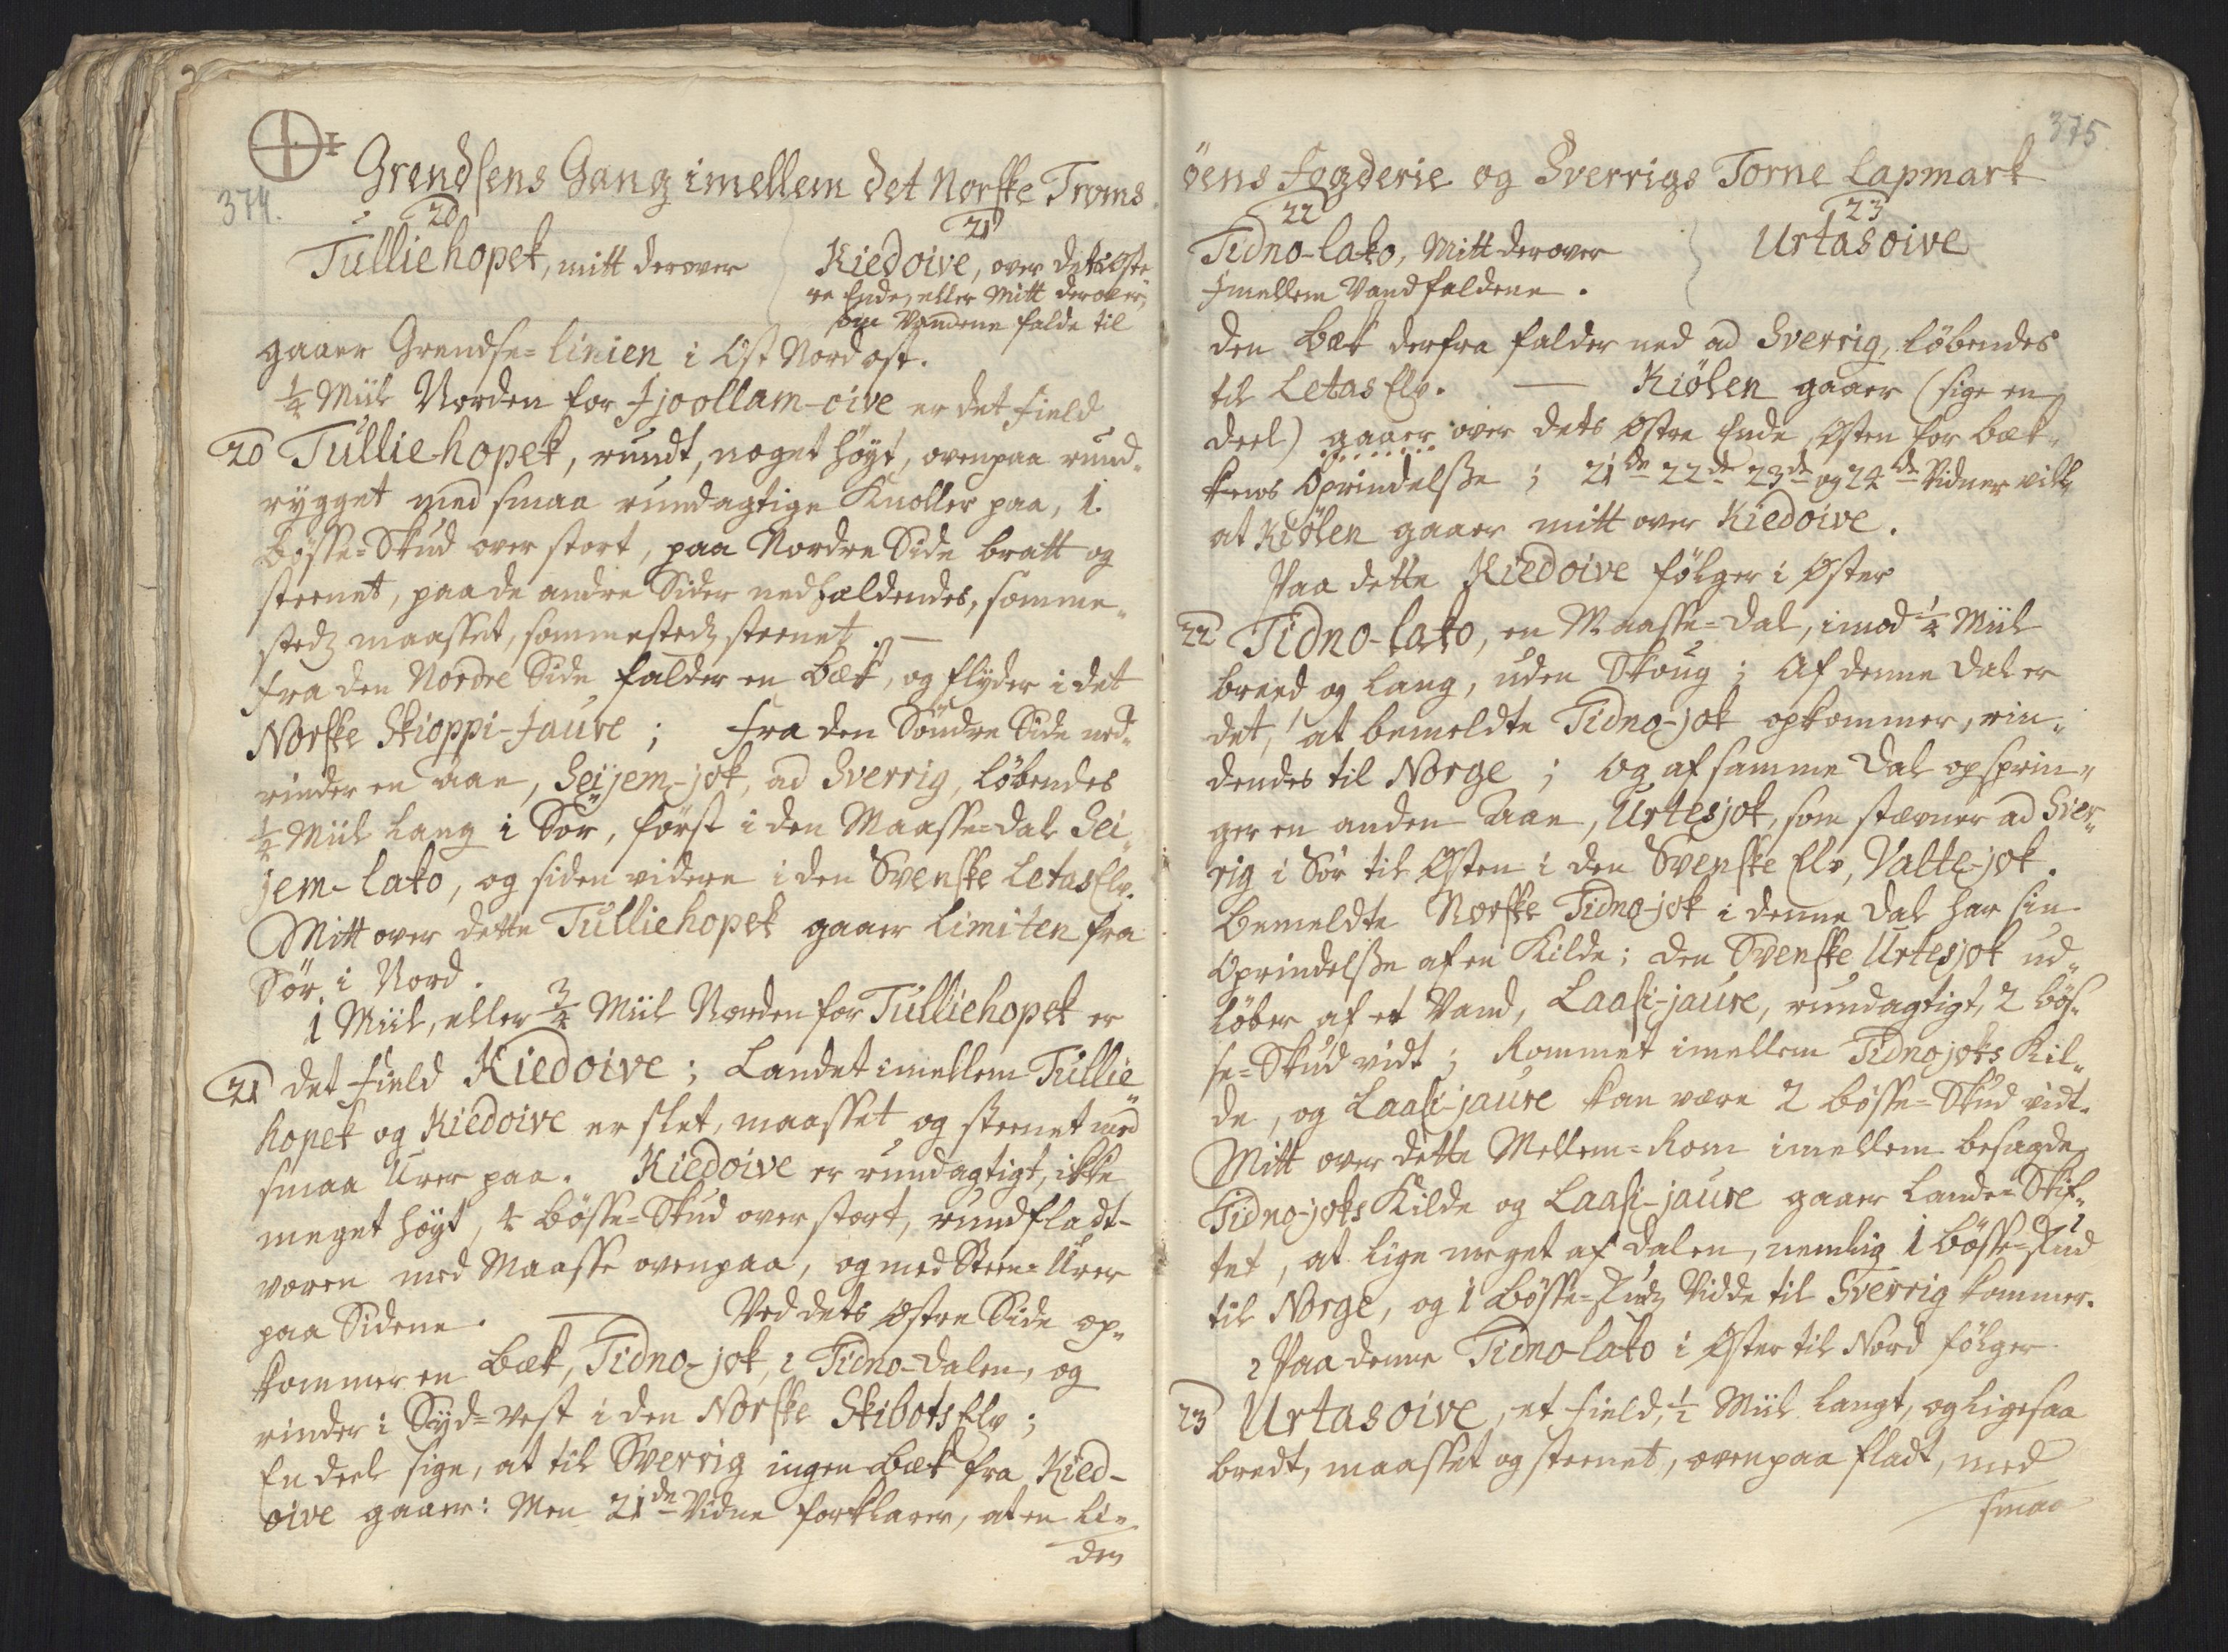 374.
Grendsens Gang imellem det Norske Troms
20
Tulliehopek, mitt derover
21
Kiedoive, over dets østr
re Ende, eller mitt derover,
som Vandene falde til
gaaer Grendse-linien i Ost Nordost.
1/4 Miil Norden for Fjoollam-oive er det Field
20 Tulliehopek, rundt, noget høyt, ovenpaa rund-
rygget med smaa rundagtige Knoller paa, 1.
Bösse-Skud over stort, paa Nordre Side bratt og
steenet, paa de andre Sider nedhældendes, somme-
stedz maasset, sommestedz steenet. —
Fra den Nordre Side falder en Bæk, og flyder i det
Norske Skioppi-Jaure; Fra den Söndre Side ned-
rinder en Aae, Seijem-jok, ad Sverrig, löbendes
1/2 Miil lang i Sör, först i den Maasse-dal Sei-
jem-lako, og siden videre i den Svenske Letas Elv.
Mitt over dette Tulliehopek gaaer Limiten fra
Sör i Nord.
1 Miil, eller 3/4 Miil Norden for Tulliehopek er
21 det Field Kiedoive; Landet imellem Tullie
hopek og Kiedoive er slet, maasset og steenet med
smaa Urer paa. Kiedoive er rundagtigt, ikke
meget höyt, 4 bösse-Skud over stort, rundfladt-
voren med Maasse ovenpaa, og med Steen-Urer
paa Sidene. — Ved dets østre Side op-
kommer en Bæk, Tidno-jok, i Tidno-dalen, og
rinder i Syd-vest i den Norske Skibots Elv;
En deel sige, at til Sverrig ingen Bæk fra Kied-
oive gaaer: Men 21de Vidne forklarer, at en li-
den
375.
öens Fogderie og Sverrigs Torne Lapmark
22
Tidno-lako, Mitt derover
imellem Vandfaldene.
23
Urtasoive
den Bæk derfra falder ned ad Sverrig, löbendes
til Letas Elv. — Kiölen gaaer (sige en
deel) gaaer over dets Østre Ende, Østen for Bæk-
kens Oprindelsse; 21de 22de 23de og 24de Vidner vill
at Kiölen gaaer mitt over Kiedoive.
Paa dette Kiedoive fölger i Øster
22 Tidno-lako, en Maasse-dal, imod 1/4 Miil
breed og lang, uden Skoug; Af denne dal er
det, at bemeldte Tidno-jok opkommer, rin-
dendes til Norge; Og af samme dal opsprin-
ger en anden Aae, Urtesjok, som stævner ad Sver-
rig i Sör til Østen i den Svenske Elv, Valte-jok.
Bemeldte Norske Tidno-jok i denne dal har sin
Oprindelsse af en Kilde; den Svenske Urtesjok ud-
löber af et Vand, Laasi-jaure, rundagtigt, 2 bös-
se-Skud vidt; Rommet imellem Tidnojoks Kil-
de, og Laasi-jaure kan være 2 bösse-Skud vidt.
Mitt over dette Mellem-Rom imellem besagde
Tidno-joks Kilde og Laasi-jaure gaaer Lande-Skif-
tet, at lige meget af dalen, nemlig 1 bösse-skud
til Norge, og 1 bösse-skudz Vidde til Sverrig kommer.
Paa denne Tidno-lako i Øster til Nord fölger
23 Urtasoive, et Field, 1/2 Miil langt, og ligesaa
bredt, maasset og steenet, ovenpaa fladt, med
smaa